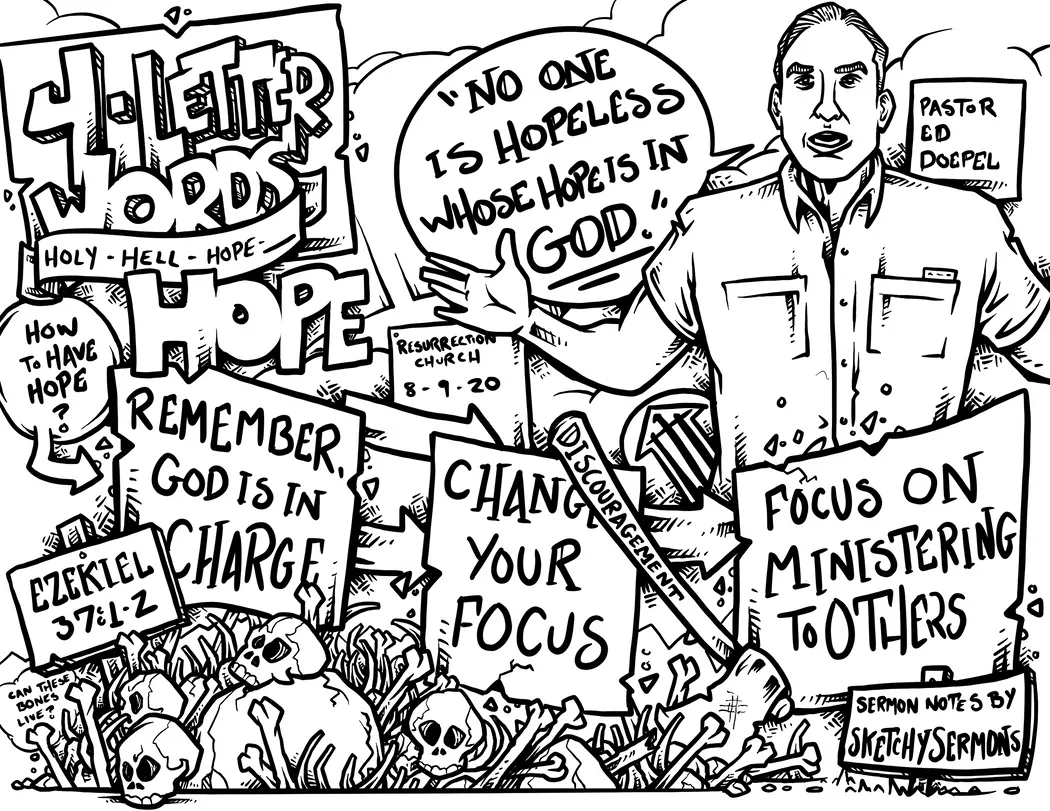 4-LETTER
WORDS
HOLY - HELL - HOPE -
HOPE
"NO ONE
IS HOPELESS
WHOSE HOPE IS IN
GOD."
PASTOR
ED
DOEPEL
RESURRECTION
CHURCH
8-9-20
HOW
TO HAVE
HOPE
?
REMEMBER,
GOD IS IN
CHARGE
CHANGE
YOUR
FOCUS
DISCOURAGEMENT
FOCUS ON
MINISTERING
TO OTHERS
EZEKIEL
37:1-2
CAN THESE
BONES
LIVE?
SERMON NOTES BY
SKETCHY SERMONS